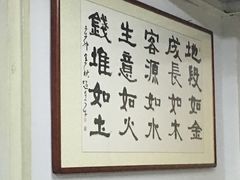 地段如金
成長如木
客源如水
生意如火
錢堆如土